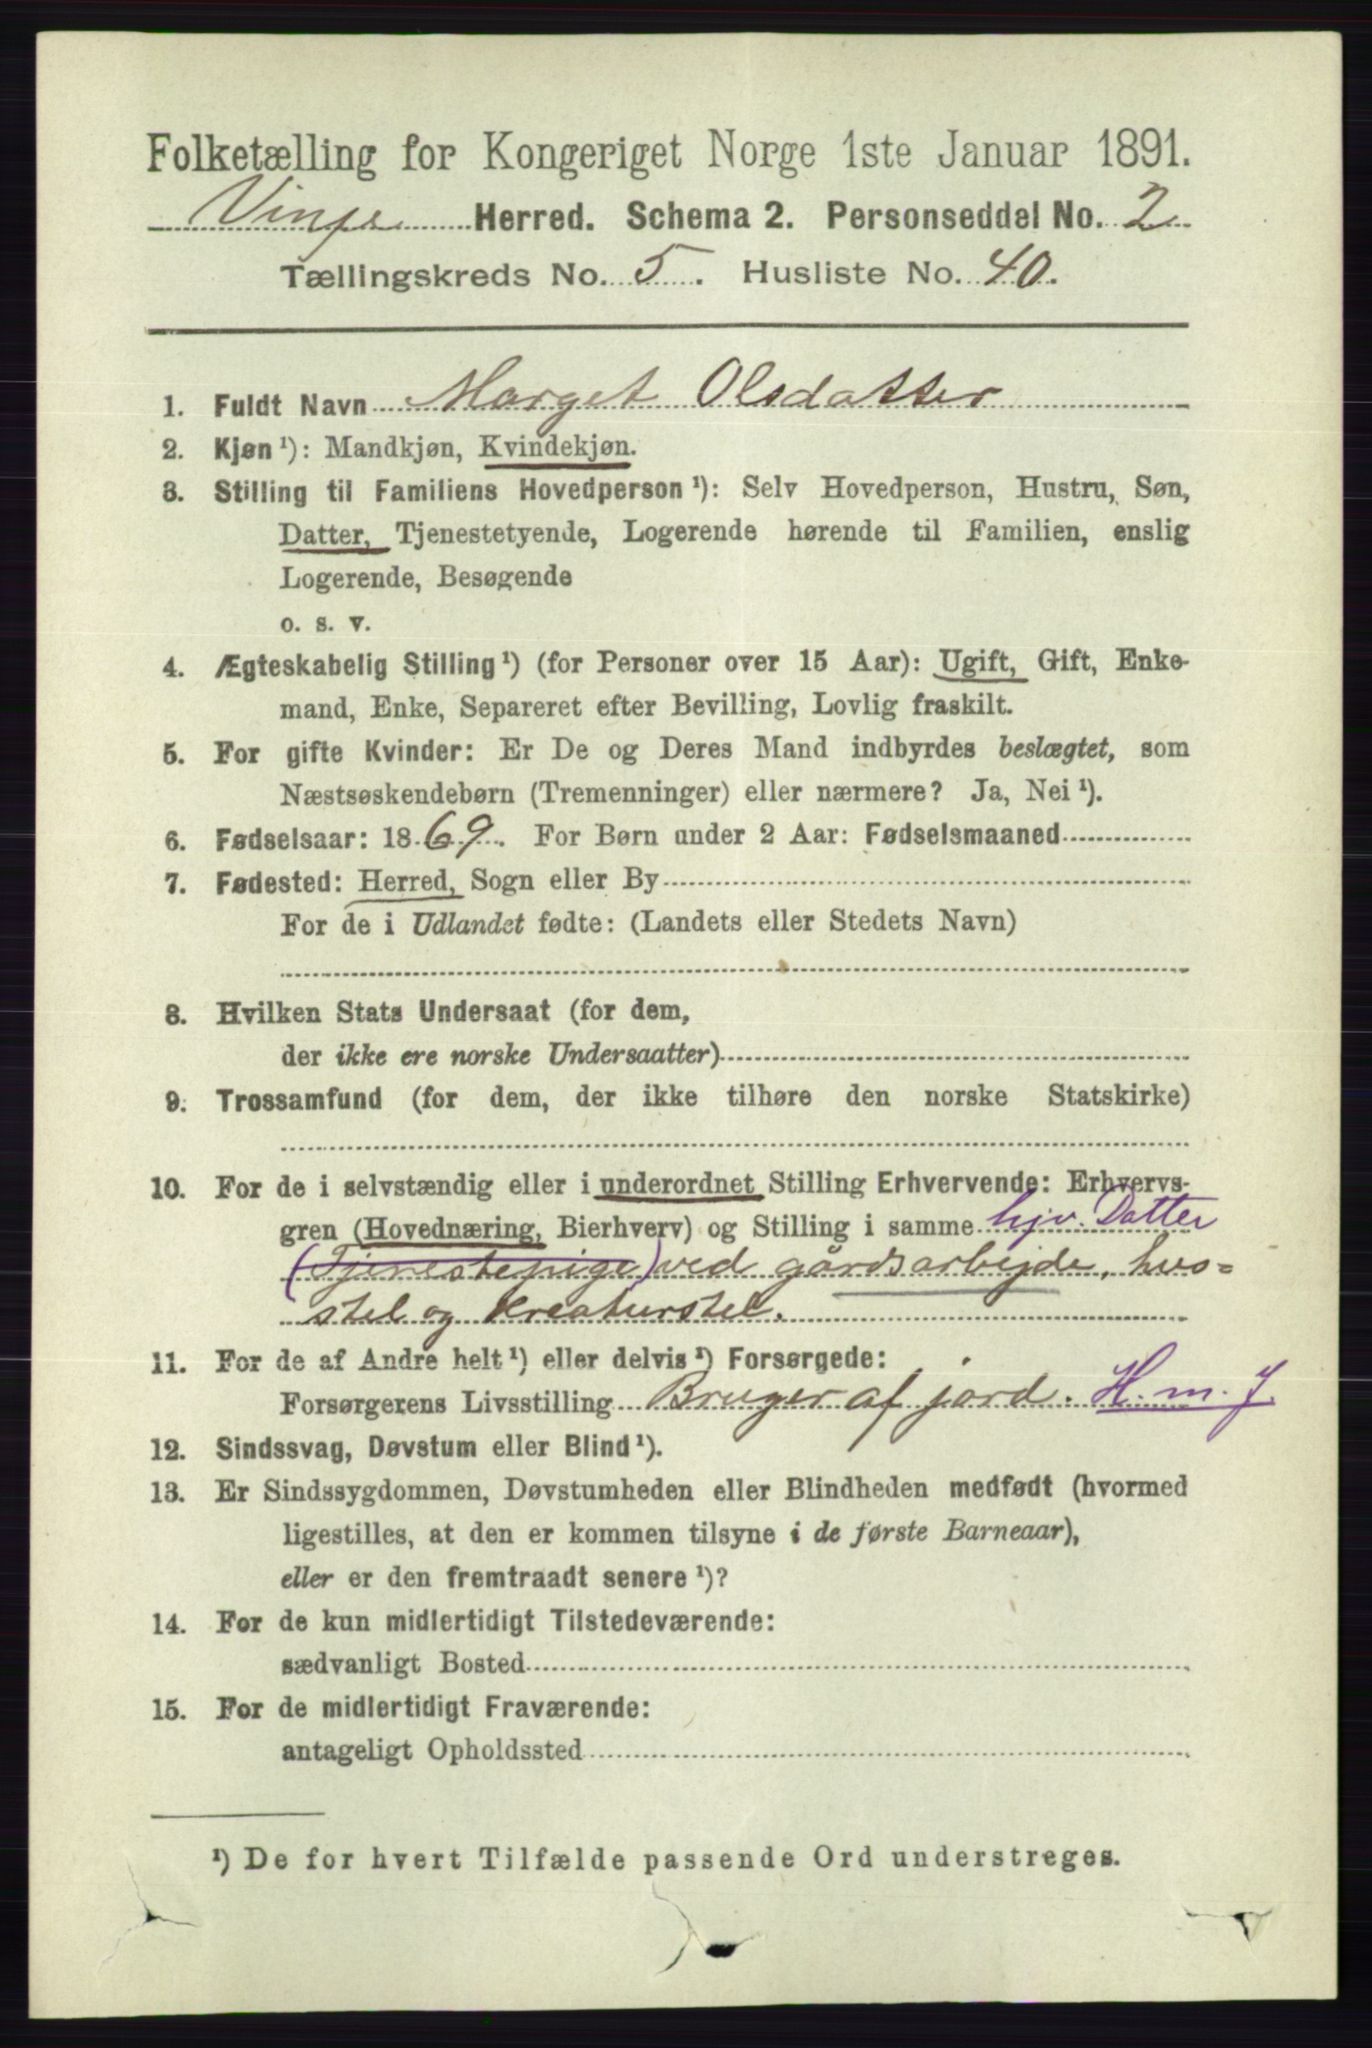 Folketælling for Kongeriget Norge 1ste Januar 1891.
Vinje Herred. Schema 2. Personseddel No. 2
Tællingskreds No. 5. Husliste No. 40.
1. Fuldt Navn Marget Olsdatter
2. Kjøn¹): Mandkjøn, Kvindekjøn.
3. Stilling til Familiens Hovedperson¹): Selv Hovedperson, Hustru, Søn,
Datter, Tjenestetyende, Logerende hørende til Familien, enslig
Logerende, Besøgende
o. s. v.
4. Ægteskabelig Stilling¹) (for Personer over 15 Aar): Ugift, Gift, Enke-
mand, Enke, Separeret efter Bevilling, Lovlig fraskilt.
5. For gifte Kvinder: Er De og Deres Mand indbyrdes beslægtet, som
Næstsøskendebørn (Tremenninger) eller nærmere? Ja, Nei¹).
6. Fødselsaar: 1869. For Børn under 2 Aar: Fødselsmaaned
7. Fødested: Herred, Sogn eller By
For de i Udlandet fødte: (Landets eller Stedets Navn)
8. Hvilken Stats Undersaat (for dem,
der ikke ere norske Undersaatter)
9. Trossamfund (for dem, der ikke tilhøre den norske Statskirke)
10. For de i selvstændig eller i underordnet Stilling Erhvervende: Erhvervs-
gren (Hovednæring, Bierhverv) og Stilling i samme hjv. Datter
(Tjenestepige) ved gårdsarbejde, hus=
stel og kreaturstel.
11. For de af Andre helt¹) eller delvis¹) Forsørgede:
Forsørgerens Livsstilling Bruger af jord. H. m. J.
12. Sindssvag, Døvstum eller Blind¹).
13. Er Sindssygdommen, Døvstumheden eller Blindheden medfødt (hvormed
ligestilles, at den er kommen tilsyne i de første Barneaar),
eller er den fremtraadt senere¹)?
14. For de kun midlertidigt Tilstedeværende:
sædvanligt Bosted
15. For de midlertidigt Fraværende:
antageligt Opholdssted
¹) De for hvert Tilfælde passende Ord understreges.